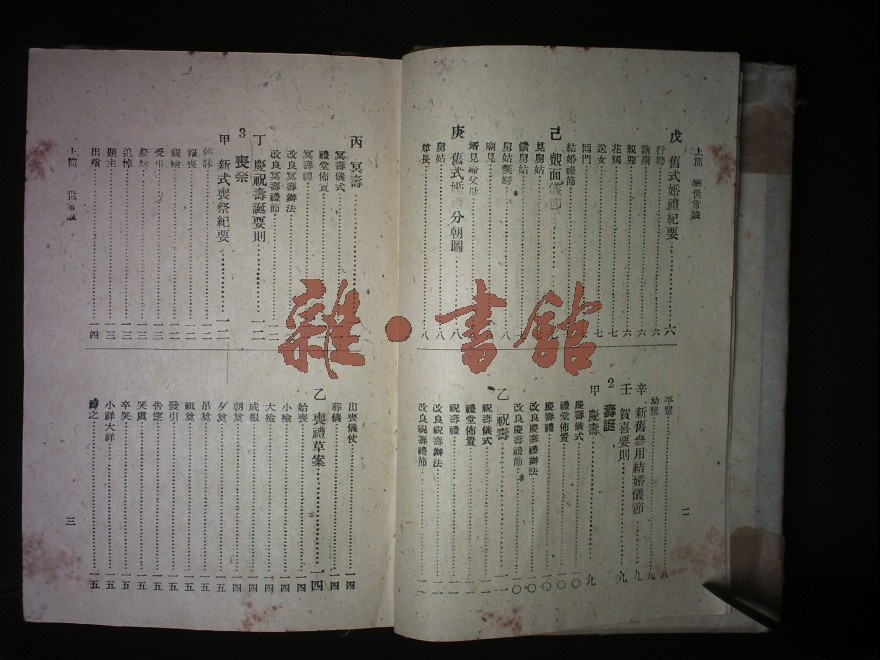 上篇 應世常識
二
戊 舊式婚禮紀要……六
行聘……六
親迎……六
花燭……七
送女……七
回門
結婚禮節
己 覿面儀節
見舅姑
饋舅姑
廟見……八
壻見婦父母……八
庚 舊式婚禮分朝圖……八
舅姑……八
尊長……八
平輩……八
幼輩……九
辛 新舊參用結婚儀節……九
壬 賀喜要則……九
2 壽誕
甲 慶壽……九
慶壽儀式……一〇
禮堂佈置……一〇
慶壽禮……一〇
改良慶壽辦法……一〇
改良慶壽禮節……一〇
乙 祝壽……一一
祝壽儀式……一一
禮堂佈置……一一
祝壽禮……一一
改良祝壽辦法……一一
改良祝壽禮節……一一
丙 冥壽
冥壽儀式
禮堂佈置
冥壽禮
改良冥壽辦法
改良冥壽禮節……一二
丁 慶祝壽誕要則……一二
3 喪祭
甲 新式喪祭紀要……一二
報喪……一二
視殮……一二
受弔……一三
祭殮……一三
追悼……一三
題主……一三
出殯……一四
上篇 應世常識
三
出喪儀仗……一四
葬儀……一四
乙 喪禮草案……一四
始喪……一四
小殮……一四
大殮……一四
成服……一四
朝奠……一四
夕奠……一五
吊奠……一五
祖奠……一五
發引……一五
告窆……一五
反虞……一五
卒哭……一五
小祥大祥……一五
雜·書館